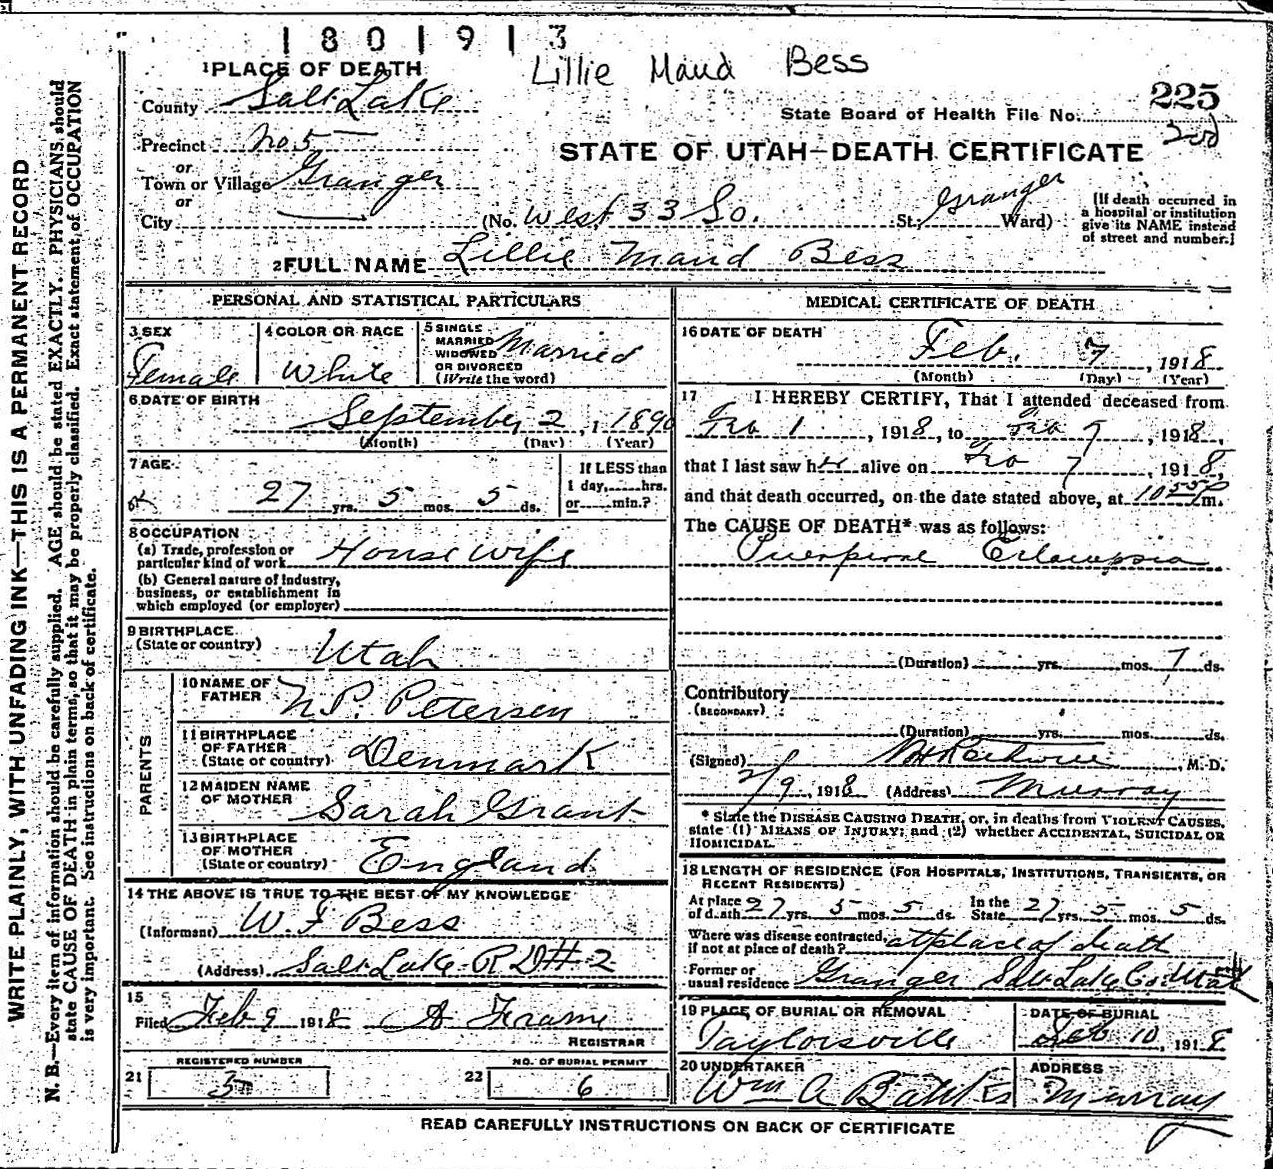 1801913
Lillie Maud Bess
1 PLACE OF DEATH
County Salt Lake
State Board of Health File No. 225
Precinct No 5
or
STATE OF UTAH—DEATH CERTIFICATE
Town or Village Granger
or
City
(No. West 33 So. St.; Granger Ward)
[If death occurred in
a hospital or institution
give its NAME instead
of street and number.]
2 FULL NAME Lillie Maud Bess
PERSONAL AND STATISTICAL PARTICULARS
3 SEX
Female
4 COLOR OR RACE
White
5 SINGLE
MARRIED
WIDOWED
OR DIVORCED
(Write the word)
Married
6 DATE OF BIRTH
September 2, 1890
(Month) (Day) (Year)
7 AGE
27 yrs. 5 mos. 5 ds.
If LESS than
1 day, hrs.
or min.?
8 OCCUPATION
(a) Trade, profession or
particular kind of work House wife
(b) General nature of industry,
business, or establishment in
which employed (or employer)
9 BIRTHPLACE
(State or country)
Utah
PARENTS
10 NAME OF
FATHER N.P. Petersen
11 BIRTHPLACE
OF FATHER
(State or country) Denmark
12 MAIDEN NAME
OF MOTHER Sarah Grant
13 BIRTHPLACE
OF MOTHER
(State or country) England
14 THE ABOVE IS TRUE TO THE BEST OF MY KNOWLEDGE
(Informant) W. F Bess
(Address) Salt Lake R D # 2
15
Filed Feb 9 1918 A Frame
REGISTRAR
REGISTERED NUMBER
21 5
NO. OF BURIAL PERMIT
22 6
MEDICAL CERTIFICATE OF DEATH
16 DATE OF DEATH
Feb. 7, 1918
(Month) (Day) (Year)
17 I HEREBY CERTIFY, That I attended deceased from
Feb 1, 1918, to Feb 7, 1918,
that I last saw her alive on Feb 7, 1918,
and that death occurred, on the date stated above, at 10 55 P m.
The CAUSE OF DEATH* was as follows:
Puerperal Eclampsia
(Duration) yrs. mos. 7 ds.
Contributory
(SECONDARY)
(Duration) yrs. mos. ds.
(Signed) M. D.
2/9, 1918 (Address) Murray
* State the DISEASE CAUSING DEATH, or, in deaths from VIOLENT CAUSES,
state (1) MEANS OF INJURY; and (2) whether ACCIDENTAL, SUICIDAL OR
HOMICIDAL.
18 LENGTH OF RESIDENCE (FOR HOSPITALS, INSTITUTIONS, TRANSIENTS, OR
RECENT RESIDENTS)
At place
of death 27 yrs. 5 mos. 5 ds.
In the
State 27 yrs. 5 mos. 5 ds.
Where was disease contracted,
if not at place of death? at place of death
Former or
usual residence Granger Salt Lake Co. Utah
19 PLACE OF BURIAL OR REMOVAL
Taylorsville
DATE OF BURIAL
Feb 10, 1918
20 UNDERTAKER
Wm A Banks
ADDRESS
Murray
READ CAREFULLY INSTRUCTIONS ON BACK OF CERTIFICATE
WRITE PLAINLY, WITH UNFADING INK—THIS IS A PERMANENT RECORD
N. B.—Every item of information should be carefully supplied. AGE should be stated EXACTLY. PHYSICIANS should
state CAUSE OF DEATH in plain terms, so that it may be properly classified. Exact statement of OCCUPATION
is very important. See instructions on back of certificate.